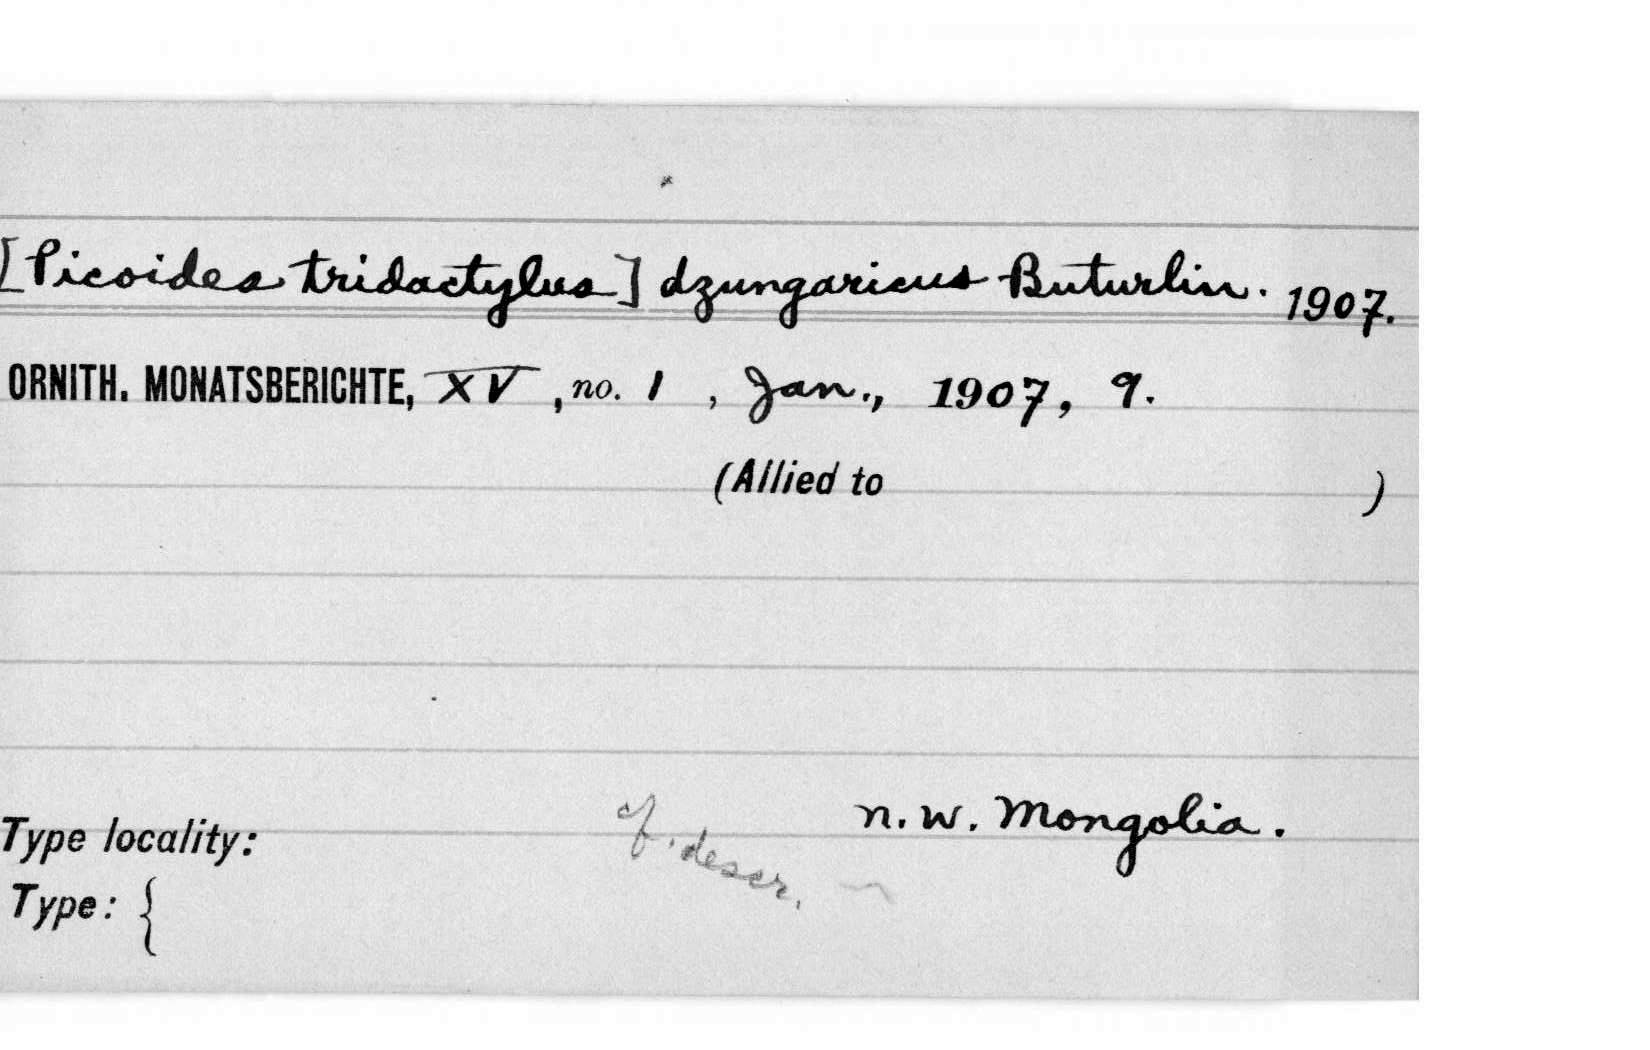 [Picoides tridactylus] dzungaricus Buturlin. 1907.
ORNITH. MONATSBERICHTE, XV, no. 1, Jan., 1907, 9.
(Allied to )
Type locality: cf. descr. n.w. Mongolia.
Type: {